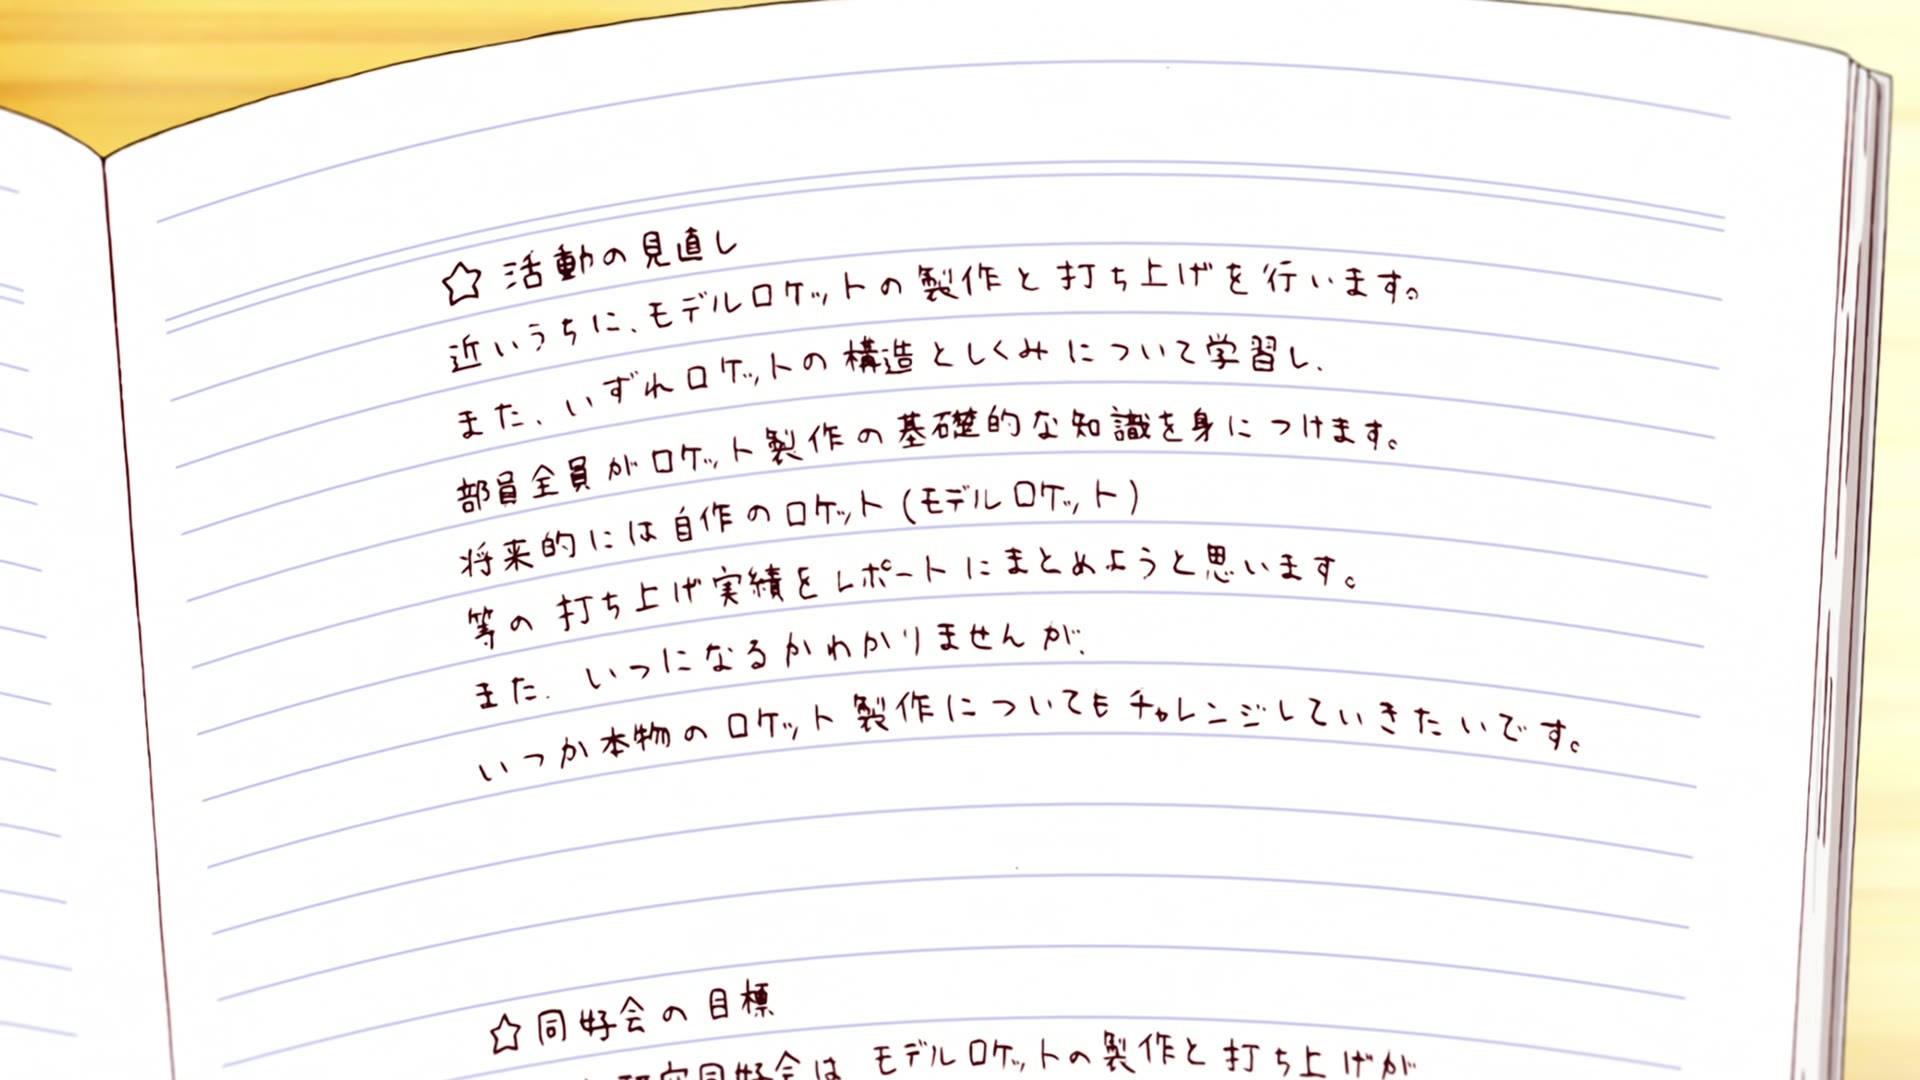 ☆活動の見直し
近いうちに、モデルロケットの製作と打ち上げを行います。
また、いずれロケットの構造としくみについて学習し、
部員全員がロケット製作の基礎的な知識を身につけます。
将来的には自作のロケット(モデルロケット)
等の打ち上げ実績をレポートにまとめようと思います。
また、いつになるかわかりませんが、
いつか本物のロケット製作についてもチャレンジしていきたいです。
☆同好会の目標
研究同好会は モデルロケットの製作と打ち上げが